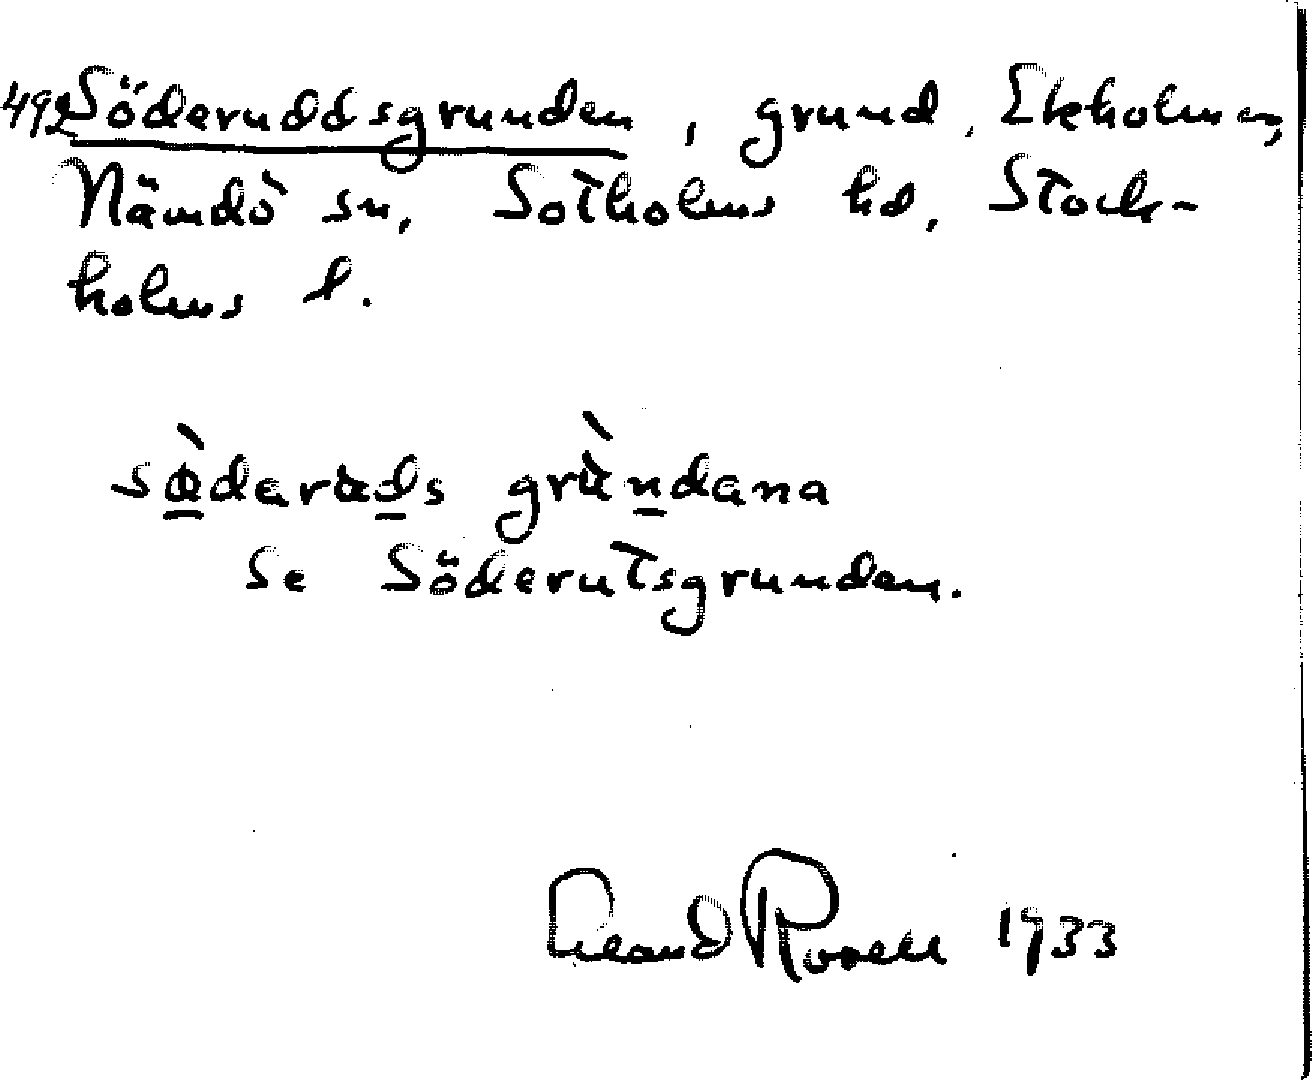 492 Söderuddsgrunden, grund, Ekholmen,
Nämdö sn, Sotholms hd, Stock-
holms l.
sö̀deruds grùndana
Se Söderutsgrunden.
1933